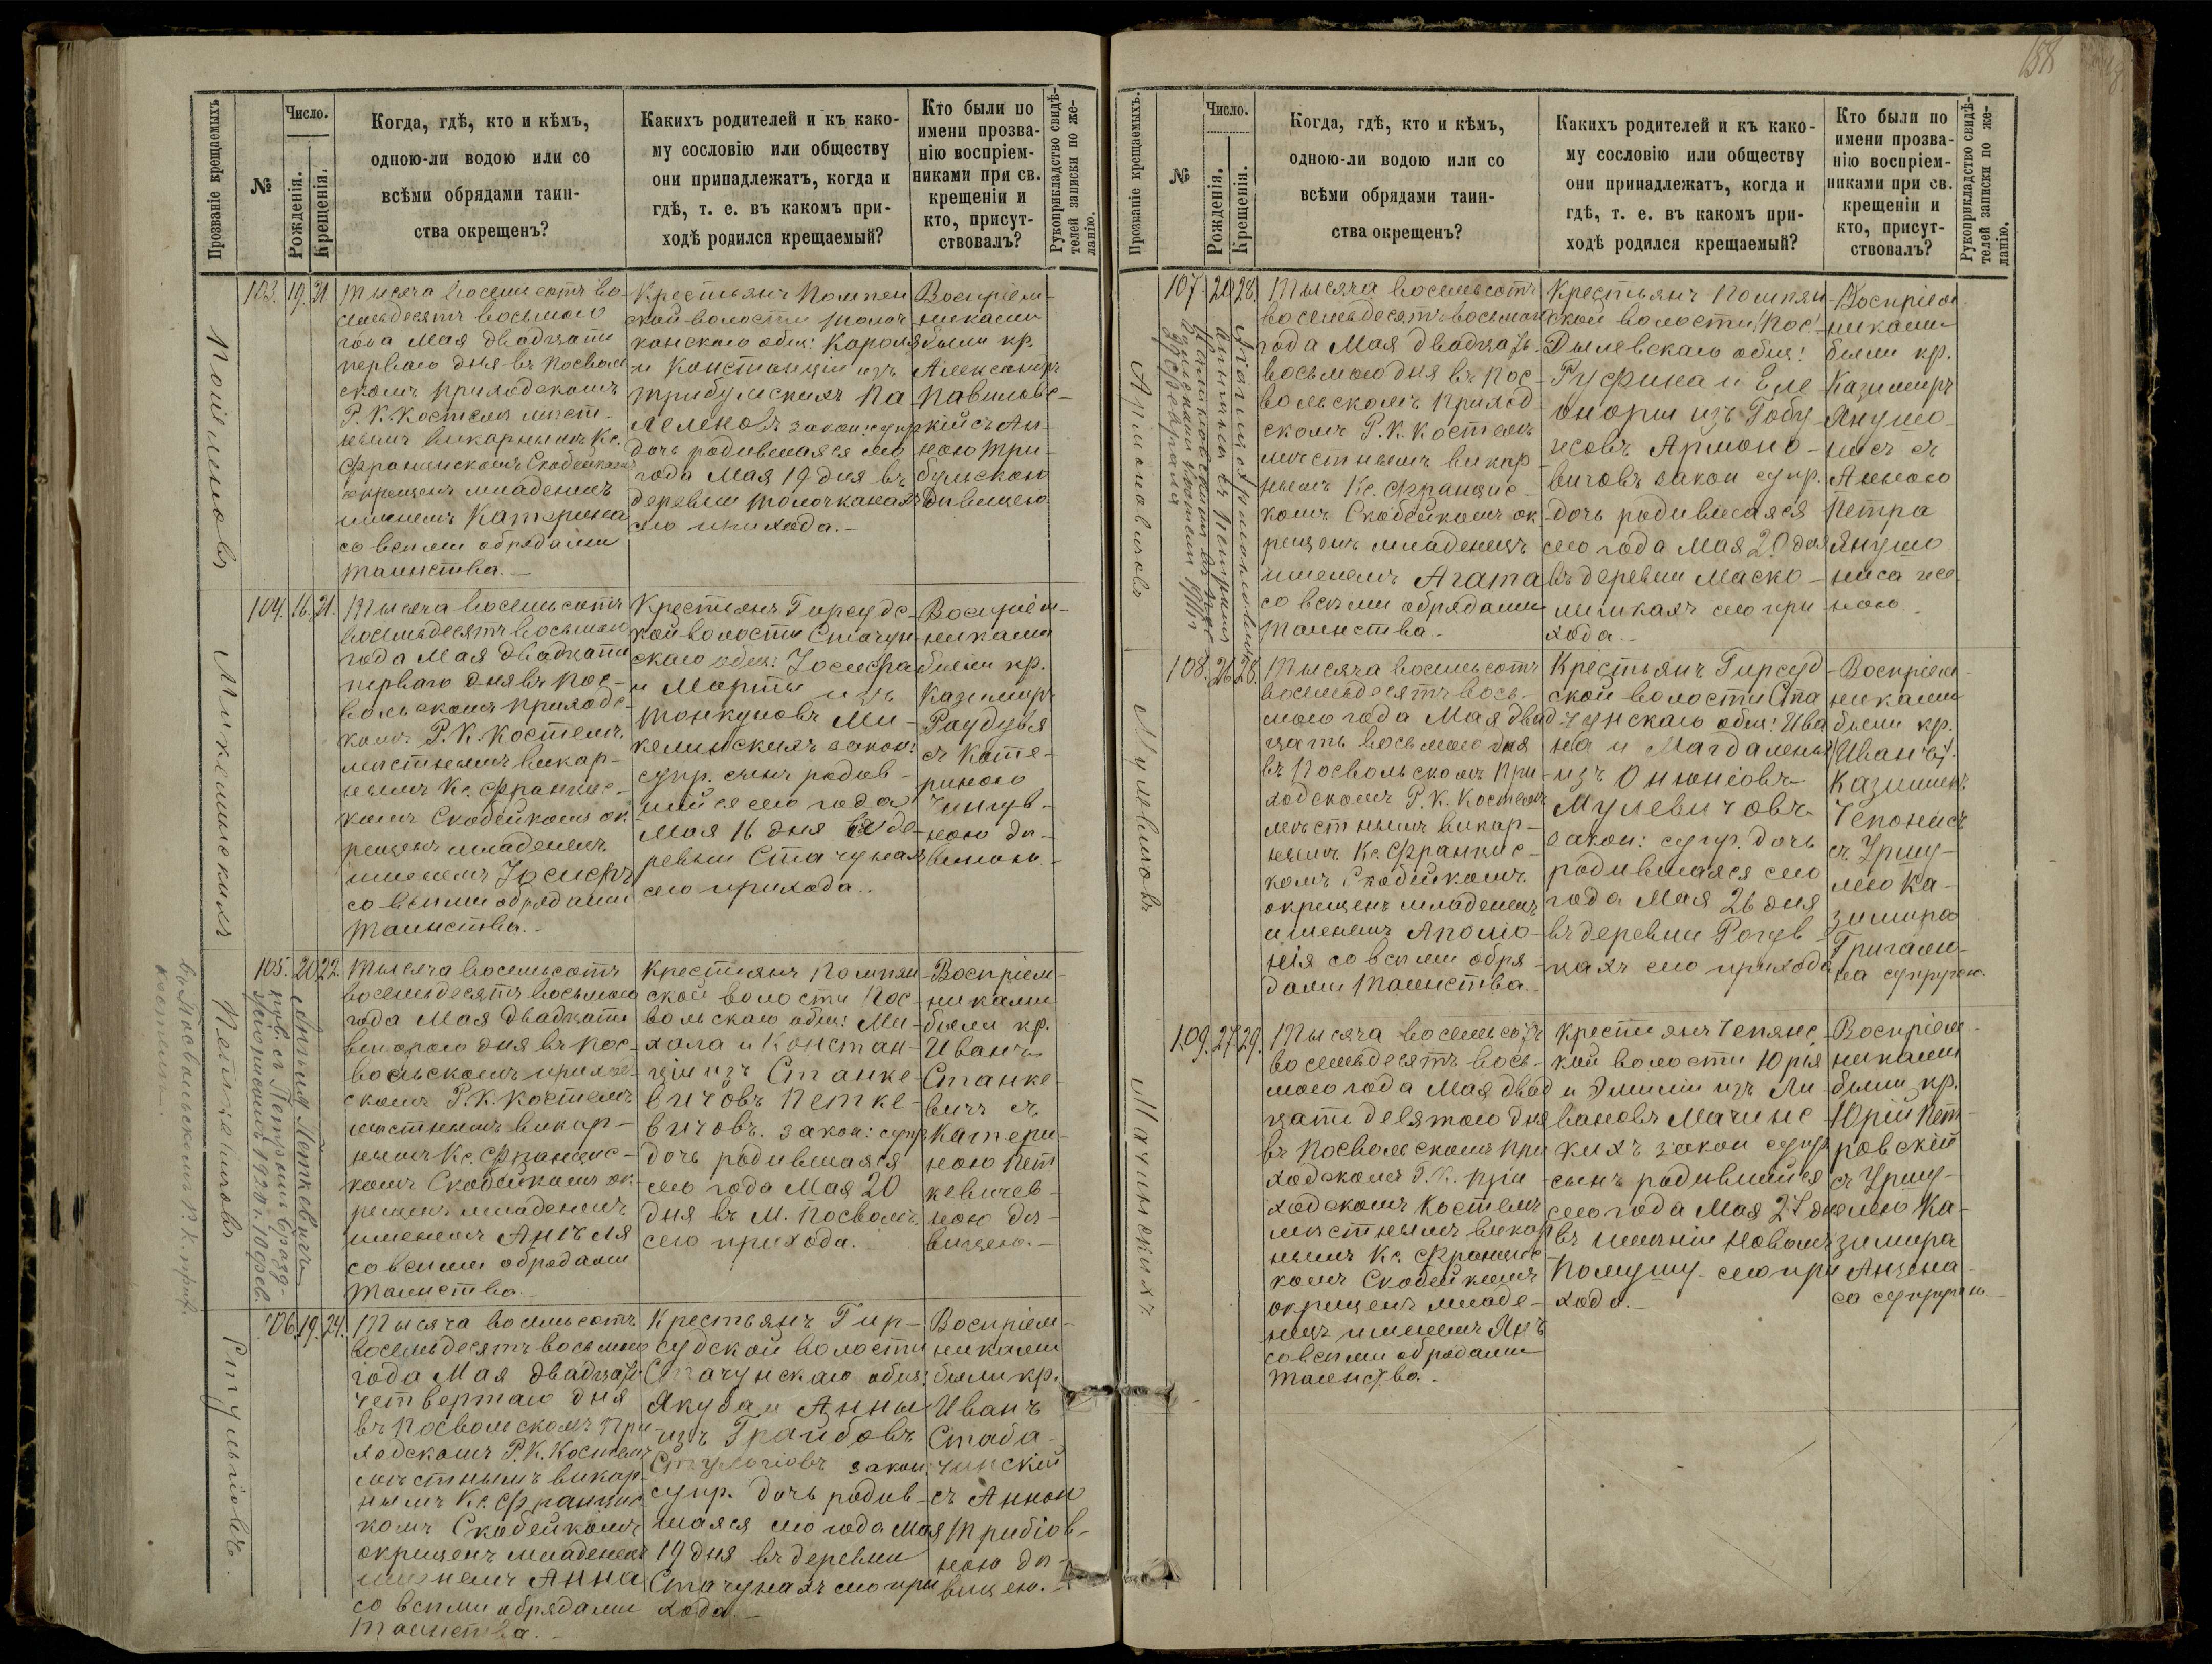 188
Прозваніе крещаемыхъ
№
Число.
Рожденія.
Крещенія.
Когда, гдѣ, кто и кѣмъ,
одною-ли водою или со
всѣми обрядами таин-
ства окрещенъ?
Какихъ родителей и къ како-
му сословію или обществу
они принадлежатъ, когда и
гдѣ, т. е. въ какомъ при-
ходѣ родился крещаемый?
Кто были по
имени прозва-
нію воспріем-
никами при св.
крещеніи и
кто, присут-
ствовалъ?
Рукоприкладство свидѣ-
телей записки по же-
ланію.
103. 19. 21.
Тысяча восемьсотъ во-
семьдесятъ восьмого
года Мая двадцать
перваго дня въ Посволь
скомъ приходскомъ
Р. К. Костелѣ мѣст-
нымъ викарнымъ Кс.
Францискомъ Скобейкомъ
окрещенъ младенецъ
именемъ Катерина
со всѣми обрядами
таинства. —
Крестьянъ Помпян
ской волости Толоч
канскаго общ: Кароля
и Констанціи изъ
Трибулискихъ Па
леновъ закон: супр
дочь родившаяся сего
года Мая 19 дня въ
деревни Толочканахъ
сего прихода. —
Воспріем-
никами
были кр.
Александръ
Павиловс-
кій съ Ан-
ною Три-
булискою
дѣвицею
104. 16. 21.
Микелинскихъ
Тысяча восемьсотъ
восемьдесятъ восьмого
года Мая двадцать
перваго дня въ Пос-
вольскомъ приходс-
комъ Р. К. Костелѣ
мѣстнымъ викар-
нымъ Кс. Францис-
комъ Скобейкомъ ок
рещенъ младенецъ
именемъ Іосифъ
со всѣми обрядами
таинства. —
Крестьянъ Гирсудс-
кой волости Стачун-
скаго общ: Іосифа
и Марты изъ
Тонкуновъ Ми-
келинскихъ закон:
супр. сынъ родив-
шійся сего года
Мая 16 дня въ де-
ревни Стачунахъ
сего прихода..
Воспріем-
никами
были кр.
Казимиръ
Раудувя
съ Кате-
риною
дѣ-
вицею.
105. 20 22.
Тысяча восемьсотъ
восемьдесятъ восьмого
года Мая двадцать
второго дня въ Пос-
вольскомъ приход-
скомъ Р. К. Костелѣ
мѣстнымъ викар-
нымъ Кс. Францис-
комъ Скобейкомъ ок-
рещенъ младенецъ
именемъ Анѣля
со всѣми обрядами
таинства
Крестьянъ Помпян
ской волости Пос-
вольскаго общ: Ми-
хала и Констан-
ціи изъ Станке-
вичовъ Петке-
вичовъ. закон: супр
дочь родившаяся
сего года Мая 20
дня въ М. Посволѣ
сего прихода. —
Воспріем-
никами
были кр.
Иванъ
Станке-
вичъ съ
Катери-
ною Пет
кевичев-
ною дѣ-
вицею. —
106. 19. 24.
Стульгіовъ.
Тысяча восемьсотъ
восемьдесятъ восьмого
года Мая двадцать
четвертаго дня
въ Посвольскомъ При
ходскомъ Р. К. Костелѣ
мѣстнымъ викар-
нымъ Кс. Францис
комъ Скобейкомъ
окрещенъ младенецъ
именемъ Анна
со всѣми обрядами
таинства. —
Крестьянъ Гир-
судской волости
Стачунскаго общ:
Якуба и Анны
изъ Грайбовъ
Стульгіовъ закон.
супр. дочь родив-
шаяся сего года Мая
19 дня въ деревни
Стачунахъ сего при
хода. —
Воспріем-
никами
были кр.
Иванъ
Стаба-
чинскій
съ Анною
Трибіов-
ною дѣ-
вицею. —
Прозваніе крещаемыхъ.
№
Число.
Рожденія.
Крещенія.
Когда, гдѣ, кто и кѣмъ,
одною-ли водою или со
всѣми обрядами таин-
ства окрещенъ?
Какихъ родителей и къ како-
му сословію или обществу
они принадлежатъ, когда и
гдѣ, т. е. въ какомъ при-
ходѣ родился крещаемый?
Кто были по
имени прозва-
нію воспріем-
никами при св.
крещеніи и
кто, присут-
ствовалъ?
Рукоприкладство свидѣ-
телей записки по же-
ланію.
107. 20 28.
Армоновичовъ
Тысяча восемьсотъ
восемьдесятъ восьмого
года Мая двадцать
восьмого дня въ Пос-
вольскомъ Приход-
скомъ Р. К. Костелѣ
мѣстнымъ викар-
нымъ Кс. Францис-
комъ Скобейкомъ ок-
рещенъ младенецъ
именемъ Агата
со всѣми обрядами
таинства.
Крестьянъ Помпян
ской волости
Дылевскаго общ:
Руфина и Еле-
оноры изъ Гобу
исовъ Армоно-
вичовъ закон супр.
дочь родившаяся
сего года Мая 20 дня
въ деревни Маско-
лишкахъ сего при
хода. —
Воспріем-
никами
были кр.
Казимиръ
Янушо-
нисъ съ
Анною
Петра
Янушо
ниса же-
ною
108. 26 28.
Мулевичовъ
Тысяча восемьсотъ
восемьдесятъ вось-
мого года Мая двад
цать восьмого дня
въ Посвольскомъ При-
ходскомъ Р. К. Костелѣ
мѣстнымъ викар-
нымъ Кс. Францис-
комъ Скобейкомъ
окрещенъ младенецъ
именемъ Аполо-
нія со всѣми обря-
дами таинства.
Крестьянъ Гирсуд
ской волости Ста
чунскаго общ: Ива
на и Магдалены
изъ Онюніовъ
Мулевичовъ
закон: супр. дочь
родившаяся сего
года Мая 26 дня
въ деревни
сего прихода
Воспріем-
никами
были кр.
Иванъ
Чепонисъ
съ Уршу-
лею Ка-
зимира
Григалю-
на супругою.
109. 27. 29.
Мачинскихъ.
Тысяча восемьсотъ
восемьдесятъ вось-
мого года Мая двад
цать девятого дня
въ Посвольскомъ При
ходскомъ Р. К. При
ходскомъ Костелѣ
мѣстнымъ викар
нымъ Кс. Францис
комъ Скобейкомъ
окрещенъ младе-
нецъ именемъ Янъ
со всѣми обрядами
таинства.
Крестьянъ
кой волости Юрія
и Эмиліи изъ Ли-
вановъ Мачинс-
кихъ закон супр
сынъ родившійся
сего года Мая 27 дня
въ имѣніи Новомъ
Помушу сего при
хода. —
Воспріем-
никами
были кр.
Юрій Пет-
ровскій
съ Уршу-
лею Ка-
зимира
со супругою